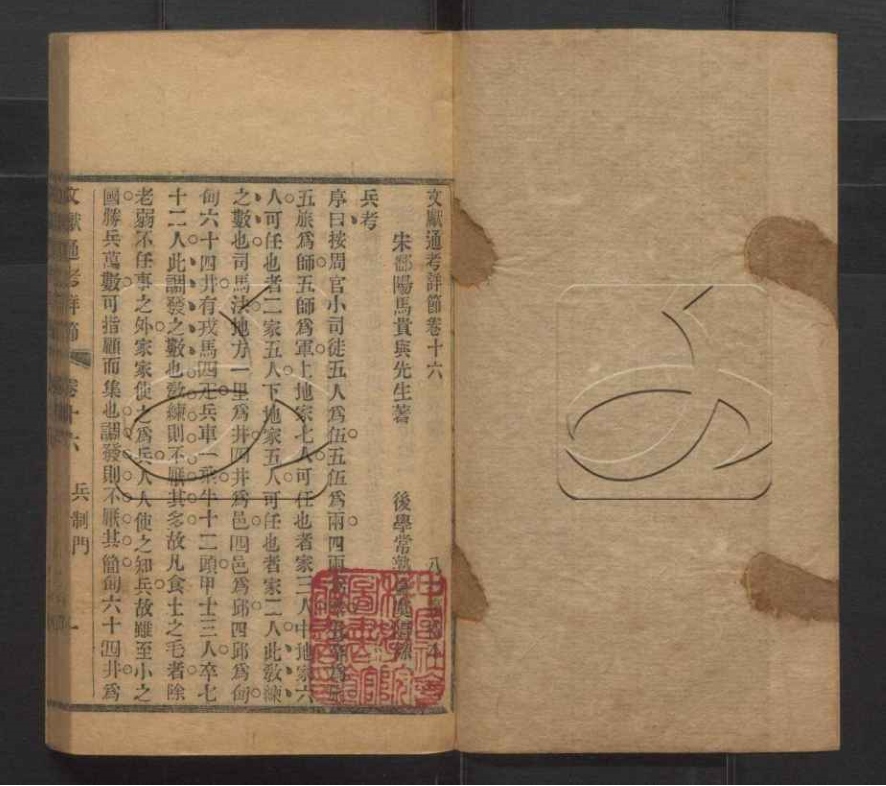 文獻通考詳節卷十六
宋鄱陽馬貴與先生著 後學常熟
兵考
序曰按周官小司徒五人爲伍五伍爲兩四兩
五旅爲師五師爲軍上地家七人可任也者家三人中地家六
人可任也者二家五人下地家五人可任也者家二人此敎練
之數也司馬法地方一里爲井四井爲邑四邑爲邱四邱爲甸
甸六十四井有戎馬四疋兵車一乘牛十二頭甲士三人卒七
十二人此調發之數也敎練則不厭其多故凡食土之毛者除
老弱不任事之外家家使之爲兵人人使之知兵故雖至小之
國勝兵萬數可指顧而集也調發則不厭其簡甸六十四井爲
文獻通考詳節 卷十六 兵制門 一